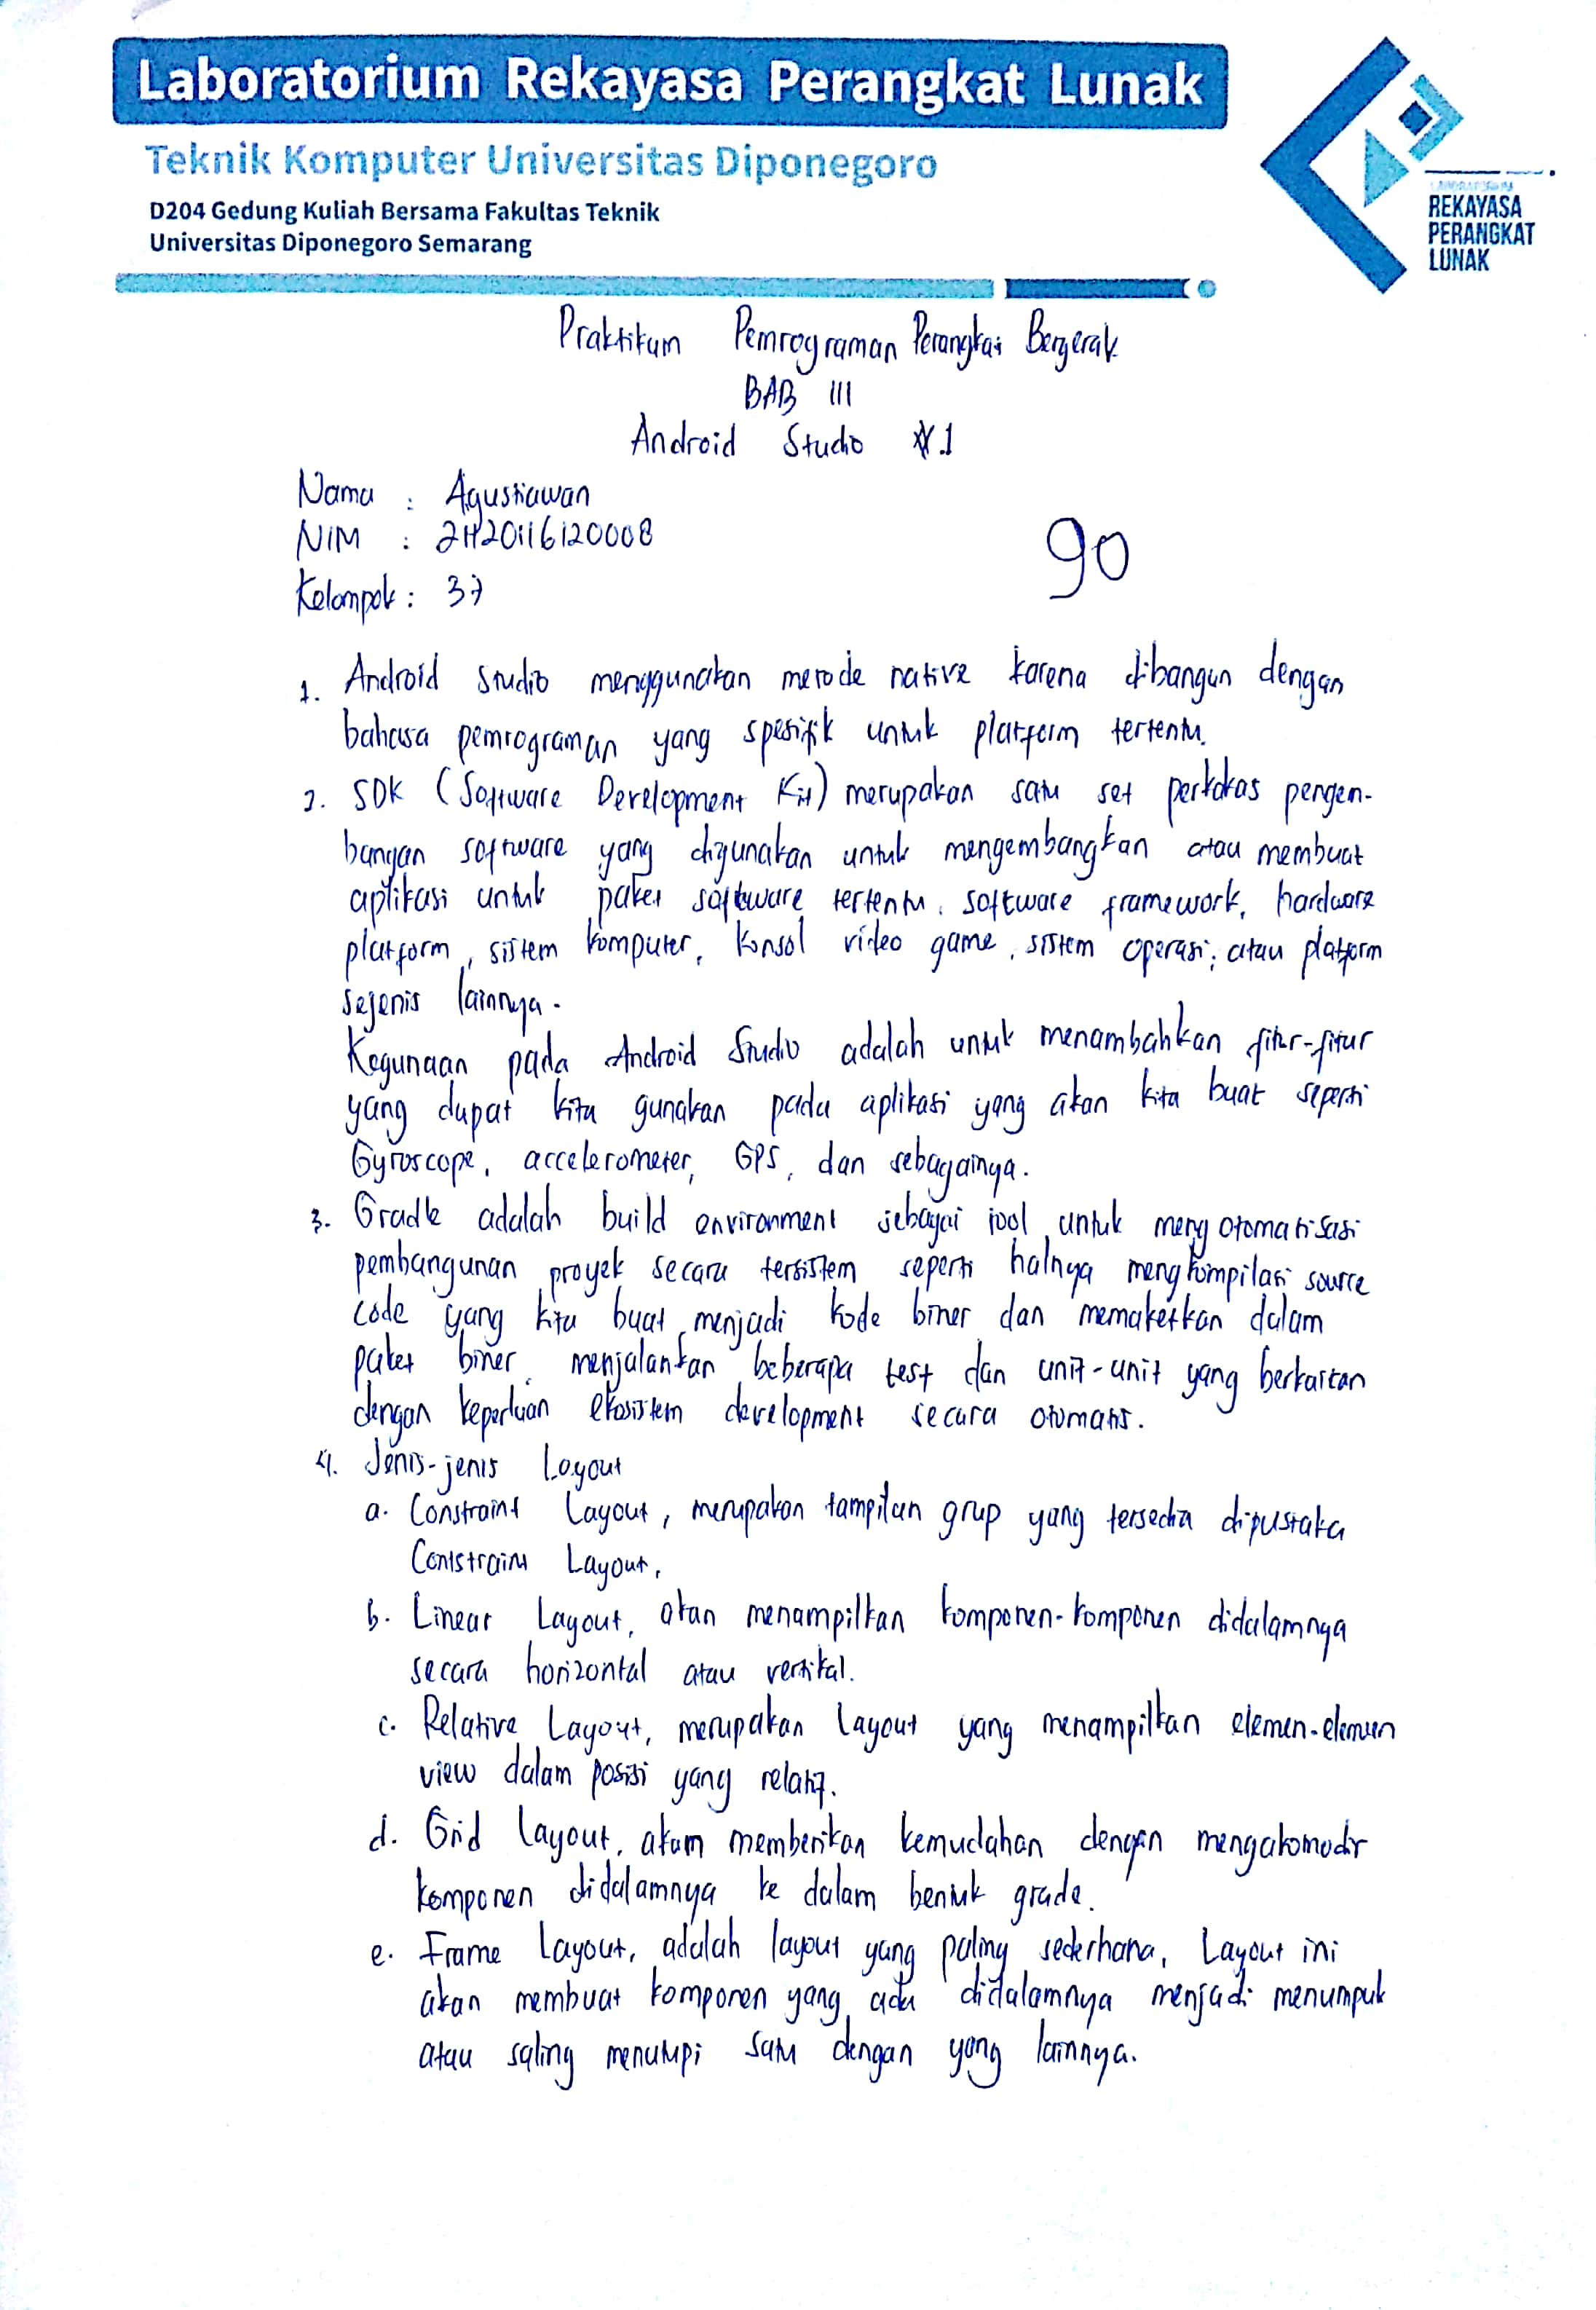 Laboratorium Rekayasa Perangkat Lunak
Teknik Komputer Universitas Diponegoro
D204 Gedung Kuliah Bersama Fakultas Teknik
Universitas Diponegoro Semarang
LABORATORIUM
REKAYASA
PERANGKAT
LUNAK
Praktikum Pemrograman Perangkat Bergerak
BAB III
Android Studio 1
Nama : Agustiawan
NIM : 21120116120008
Kelompok : 37
90
1. Android Studio menggunakan metode native karena dibangun dengan
bahasa pemrograman yang spesifik untuk platform tertentu.
2. SDK (Software Development Kit) merupakan satu set perkakas pengem-
bangan software yang digunakan untuk mengembangkan atau membuat
aplikasi untuk paket software tertentu, software framework, hardware
platform, sistem komputer, konsol video game, sistem operasi, atau platform
sejenis lainnya.
Kegunaan pada Android Studio adalah untuk menambahkan fitur-fitur
yang dapat kita gunakan pada aplikasi yang akan kita buat seperti
Gyroscope, accelerometer, GPS, dan sebagainya.
3. Gradle adalah build environment sebagai tool untuk mengotomatisasi
pembangunan proyek secara tersistem seperti halnya mengkompilasi source
code yang kita buat menjadi kode biner dan memaketkan dalam
paket biner, menjalankan beberapa test dan unit-unit yang berkaitan
dengan keperluan ekosistem development secara otomatis.
4. Jenis-jenis Layout
a. Constraint Layout, merupakan tampilan grup yang tersedia dipustaka
Constraint Layout,
b. Linear Layout, akan menampilkan komponen-komponen didalamnya
secara horizontal atau vertikal.
c. Relative Layout, merupakan layout yang menampilkan elemen-elemen
view dalam posisi yang relatif.
d. Grid Layout, akam memberikan kemudahan dengan mengakomodir
komponen didalamnya ke dalam bentuk grade.
e. Frame Layout, adalah layout yang paling sederhana, Layout ini
akan membuat komponen yang ada didalamnya menjadi menumpuk
atau saling menutupi satu dengan yang lainnya.